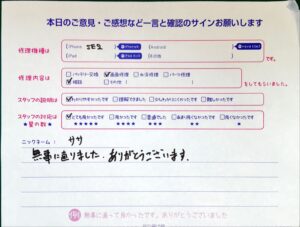 本日のご意見・ご感想など一言と確認のサインお願いします
修理機種は
iPhone SE2
Android
iPad
その他
です。
修理内容は
バッテリー交換 ✓画面修理 水没修理 パーツ修理
✓相談 その他
をしてもらいました。
スタッフの説明は
✓わかりやすかったです 理解できました 難しかったです
スタッフの対応は
★星の数
✓とても良かったです 良かったです 普通でした 良くなかったです
★★★★★ ★★★★ ★★★ ★★ ★
ニックネーム: ササ
無事に直りました。ありがとうございます。
無事に直って良かったです。ありがとうございました